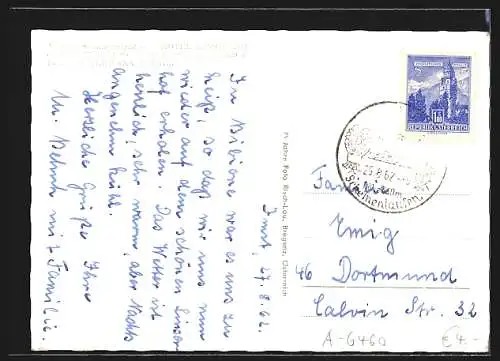 Imst, 27.8.62.
In Bibione war es uns zu
heiß, so daß wir uns nun
wieder auf dem schönen Linser-
hof erholen. Das Wetter ist
herrlich, sehr warm, aber Nachts
angenehm kühl.
Herzliche Grüße Ihre
mit Familie.
Echte Foto Risch-Lau, Bregenz, Österreich
REPUBLIK ÖSTERREICH
Familie
Emig
46 Dortmund
Calvin Str. 32
A-6460
€ 4.-